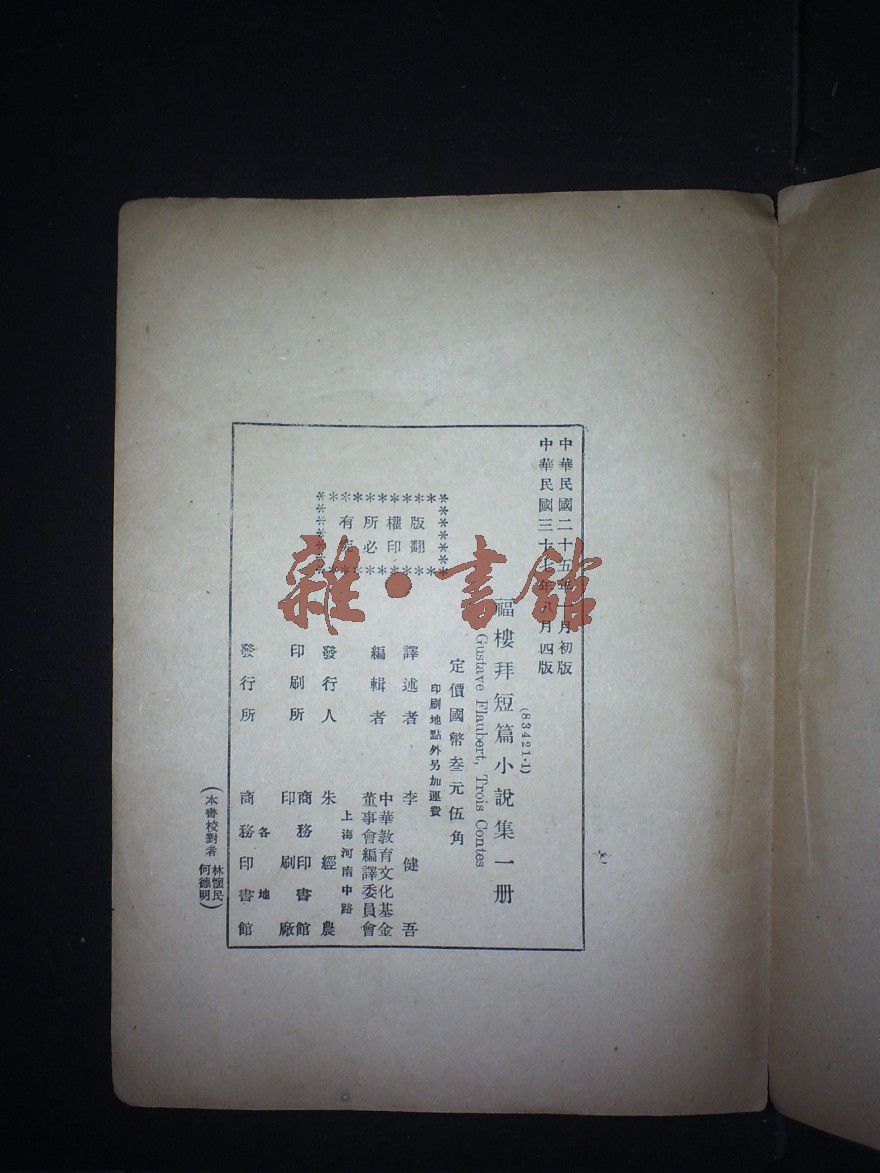 中華民國二十五年一月初版
中華民國三十七年八月四版
(83421·1)
福樓拜短篇小說集一册
Gustave Flaubert, Trois Contes
定價國幣叁元伍角
印刷地點外另加運費
版權所有
翻印必究
譯述者 李健吾
編輯者 中華教育文化基金董事會編譯委員會
上海河南中路
發行人 朱經農
印刷所 商務印書館印刷廠
各地
發行所 商務印書館
(本書校對者 林懷民 何德明)
雜·書館